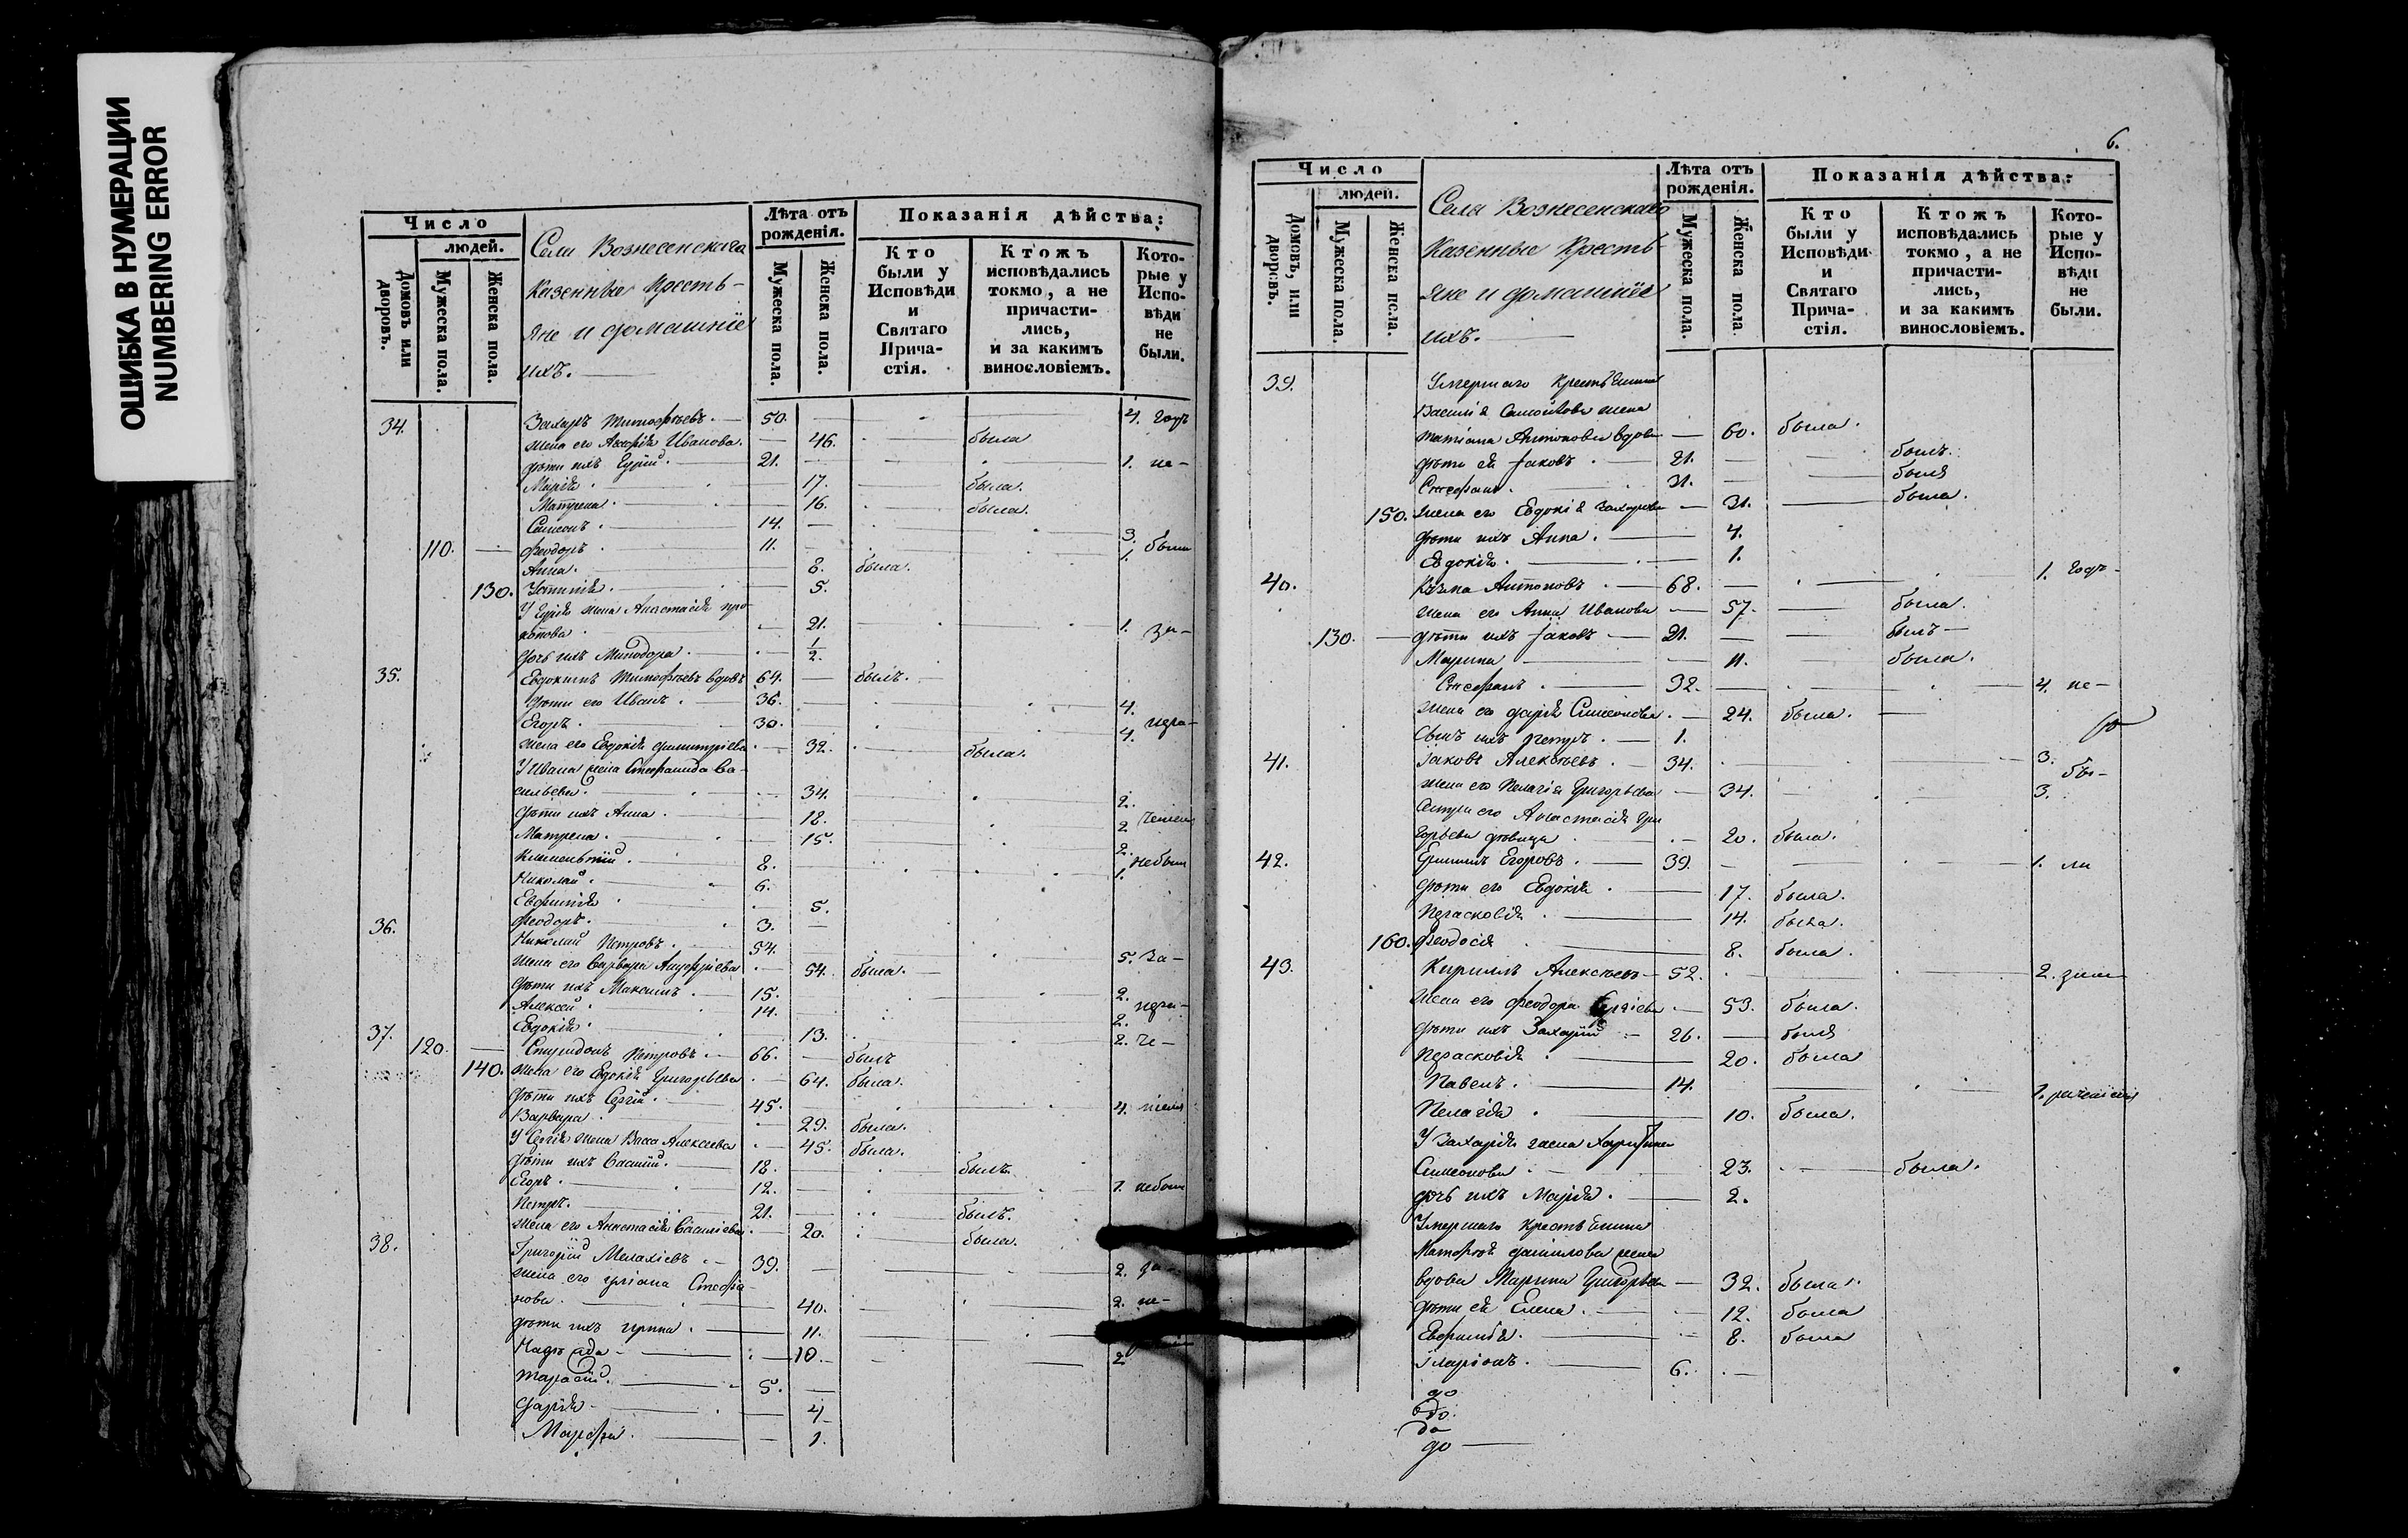 ОШИБКА В НУМЕРАЦИИ
NUMBERING ERROR
Число
людей.
Домовъ или дворовъ.
Мужеска пола.
Женска пола.
Села Вознесенскаго
Казенные Кресть-
яне и домашніе
ихъ.
Лѣта отъ рожденія.
Мужеска пола.
Женска пола.
Показанія дѣйства:
Кто были у Исповѣди и Святаго Прича- стія.
Ктожъ исповѣдались токмо, а не причасти- лись, и за какимъ винословіемъ.
Кото- рые у Испо- вѣди не были.
34. Захаръ Тимофѣевъ. 50. 4. годъ
жена его Иванова. 46. была
дѣти ихъ Гурій. 21. 1. не-
Марія 17. была.
Матрена. 16. была.
Симеонъ. 14. 3.
110. Феодоръ. 11. 1. были
Анна. 8. была.
130. Устинія. 5.
У Гурія жена Анастасія про-
копова 21. 1. за-
дочь ихъ Минодора. 1/2.
35. Евдокимъ Тимофѣевъ вдовъ 64. былъ.
дѣти его Иванъ. 36. 4.
Егоръ. 30. 4. нера-
жена его Евдокія Димитріева 32. была.
У Ивана жена Стефанида Ва-
сильева. 34. 2.
дѣти ихъ Анна. 18. 2 ченіем
Матрена. 15. 2.
Климентій. 8. 1. небыли
Николай. 6.
Евфимія 5.
Феодоръ. 3.
36. Николай Петровъ. 54. 5. За-
жена его Варвара 54. была.
дѣти ихъ Максимъ. 15. 2.
Алексей. 14. 2. нера-
Евдокія. 13. 2. че-
37. 120. Спиридонъ Петровъ. 66. былъ
140. жена его Евдокія Григорьева 64. была.
дѣти ихъ Сергій. 45. 4. ніемъ
Варвара. 29. была.
У Сергія жена Васса Алексеева 45. была.
дѣти ихъ Василій. 18. былъ.
Егоръ. 12. 1. небыл
Петръ. 21. былъ.
жена его Анастасія Василіева 20. была.
38. Григорій Малахіевъ. 39. 2. за-
жена его Уліана Стефа-
нова. 40. 2. не-
дѣти ихъ Ирина. 11.
Надежда 10. 2
Тарасій. 5.
Дарія 4
Марфа. 1.
6.
Число
людей.
Домовъ, или дворовъ.
Мужеска пола.
Женска пола.
Села Вознесенскаго
Казенные Кресть-
яне и домашніе
ихъ.
Лѣта отъ рожденія.
Мужеска пола.
Женска пола.
Показанія дѣйства:
Кто были у Исповѣди и Святаго Прича- стія.
Ктожъ исповѣдались токмо, а не причасти- лись, и за какимъ винословіемъ.
Кото- рые у Испо- вѣди не были.
39. Умершаго крестьянина
Василія Самойлова жена
Татіана Антонова вдова 60. была.
дѣти ея Іаковъ. 21. былъ.
Стефанъ. 31. былъ
150. жена его Евдокія Захарова 31. была.
дѣти ихъ Анна. 4.
Евдокія. 1.
40. Козма Антоновъ. 68. 1. годъ-
жена его Анна Иванова 57. была.
130. дѣти ихъ Іаковъ 21. былъ
Марина 11. была.
Стефанъ. 32. 4. не-
жена его Дарія Симеонова. 24. была.
Сынъ ихъ Петръ. 1.
41. Іаковъ Алексѣевъ. 34. 3. бы-
жена его Пелагія Григорьева 34. 3.
Сестра его Анастасія Гри
горьева дѣвица 20. была.
42. Ермилъ Егоровъ. 39. 1. ли
дѣти его Евдокія. 17. была.
Парасковія. 14. была.
160. Феодосія 8. была.
43. Кириллъ Алексѣевъ 52. 2. зане
жена его Феодора 53. была.
дѣти ихъ Захарій 26. былъ
Парасковія. 20. была
Павелъ. 14. 1. раченіемъ
Пелагія. 10. была.
У Захарія жена Харитина
Симеонова. 23. была.
дочь ихъ Марія. 2.
Умершаго крестьянина
Матфея Данилова жена
вдова Марина Григорьева 32. была.
дѣти ея Елена. 12. была
Евфимія. 8. была
Иларіонъ. 6.
до
до